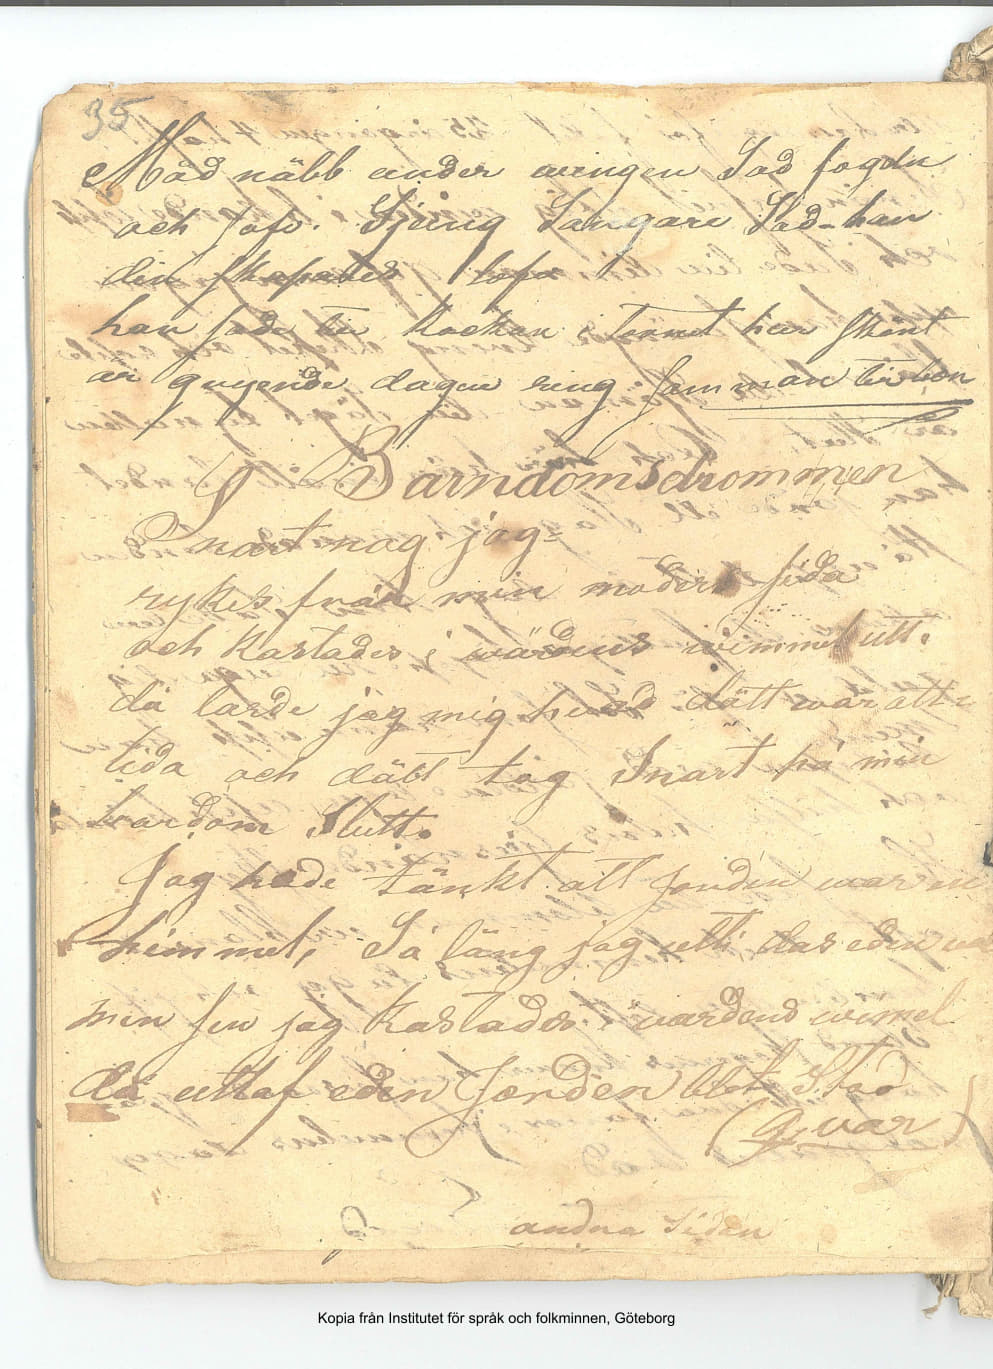 35
Mäd näbb under wingen Sad fogeln
och fofo. Sjung Sangare Sad-han
din skapares lofo
han sade til klockan i tornet hur skönt
är gryende dagen ring samman til bön
Barndomsdrommen
Snart nog jag
rykes från min moders sida
och kastades i wärdens wimmel utt.
då larde jag mig hvad dätt war att
lida och dätt tog Snart på min
bardom Slutt.
Jag hade tänkt att jorden war en
himmel, Så läng jag utti das eden war
men sen jag kastades i wardens wimel
då uttaf eden Jorden blot Stod
(qwar)
andra Siden
Kopia från Institutet för språk och folkminnen, Göteborg